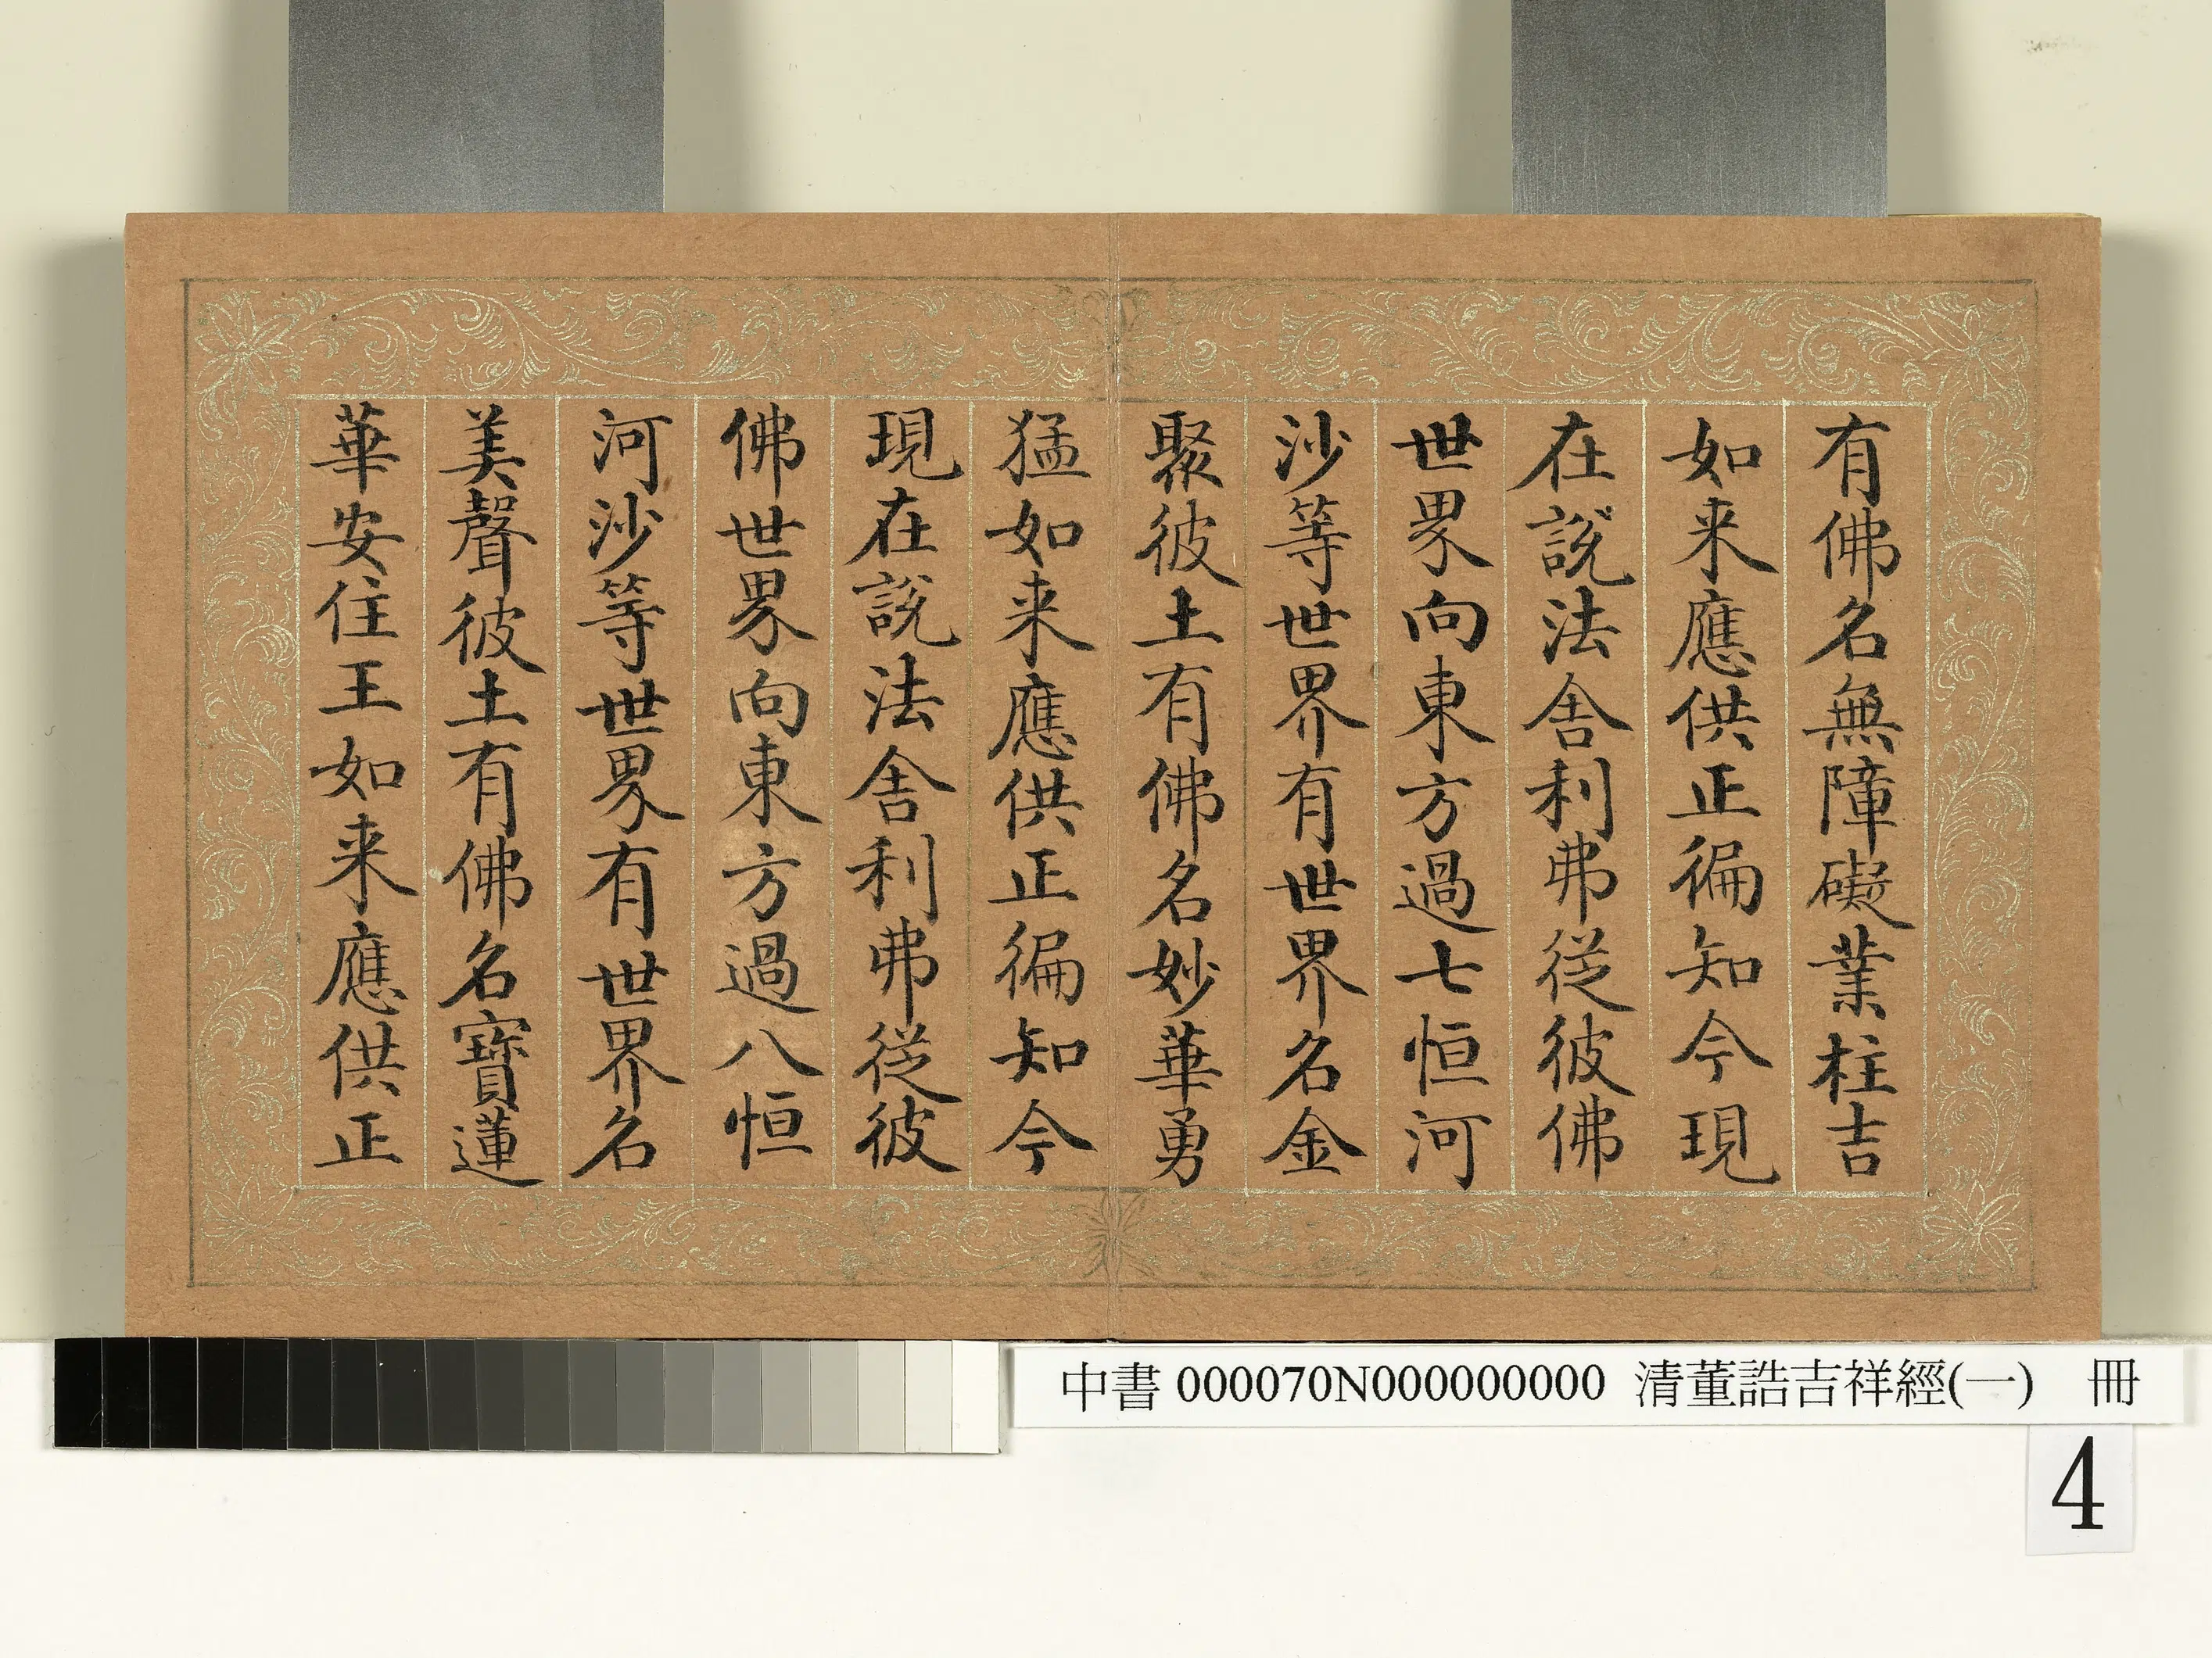 有佛名無障礙業柱吉
如来應供正徧知今現
在說法舍利弗從彼佛
世界向東方過七恒河
沙等世界有世界名金
聚彼土有佛名妙華勇
猛如来應供正徧知今
現在說法舍利弗從彼
佛世界向東方過八恒
河沙等世界有世界名
美聲彼土有佛名寶蓮
華安住王如来應供正
中書000070N000000000 清董誥吉祥經(一) 冊
4